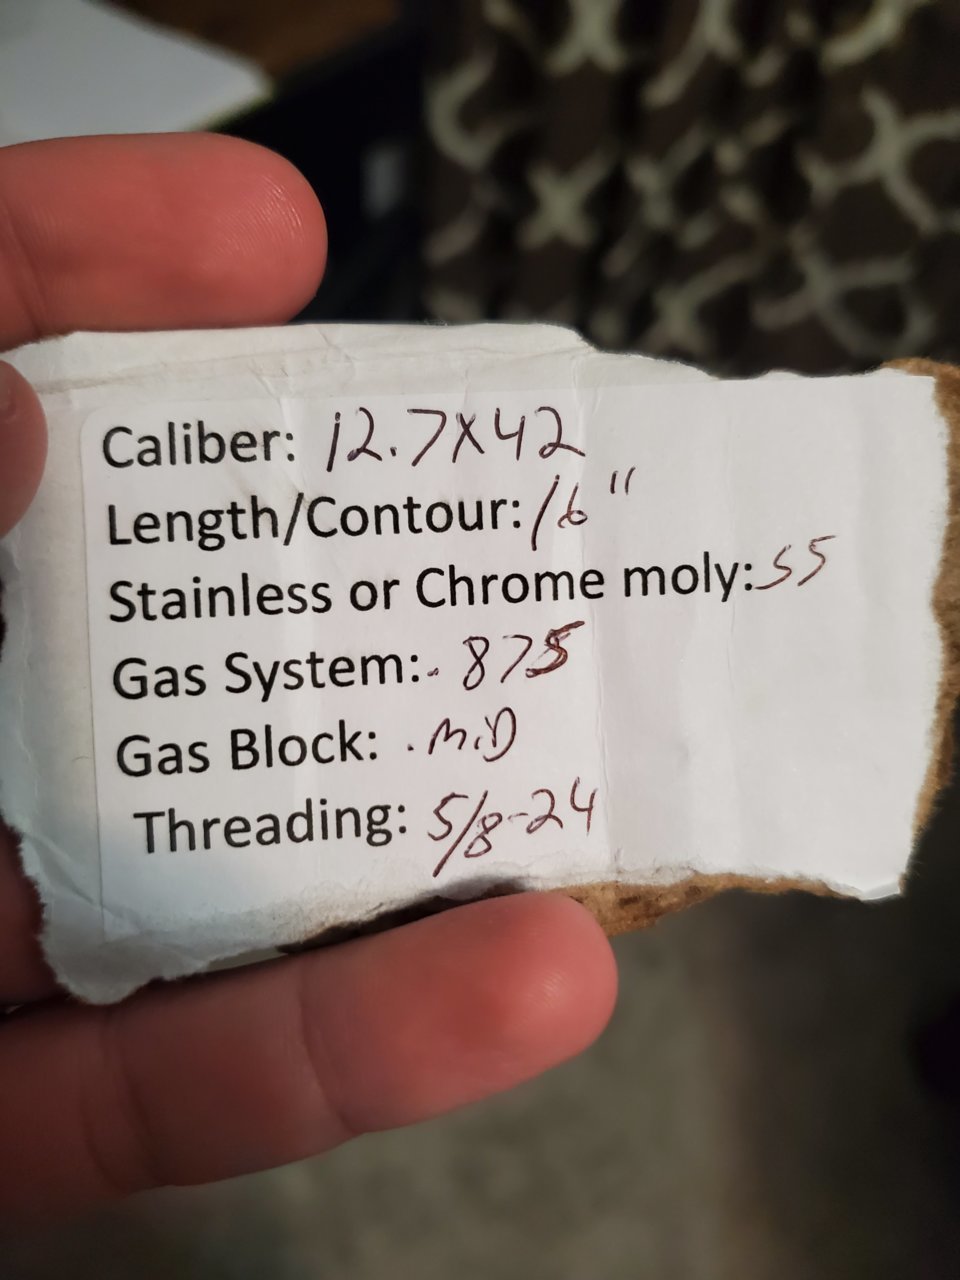 Caliber: 12.7X42
Length/Contour: 16"
Stainless or Chrome moly: SS
Gas System: .875
Gas Block: .MID
Threading: 5/8-24